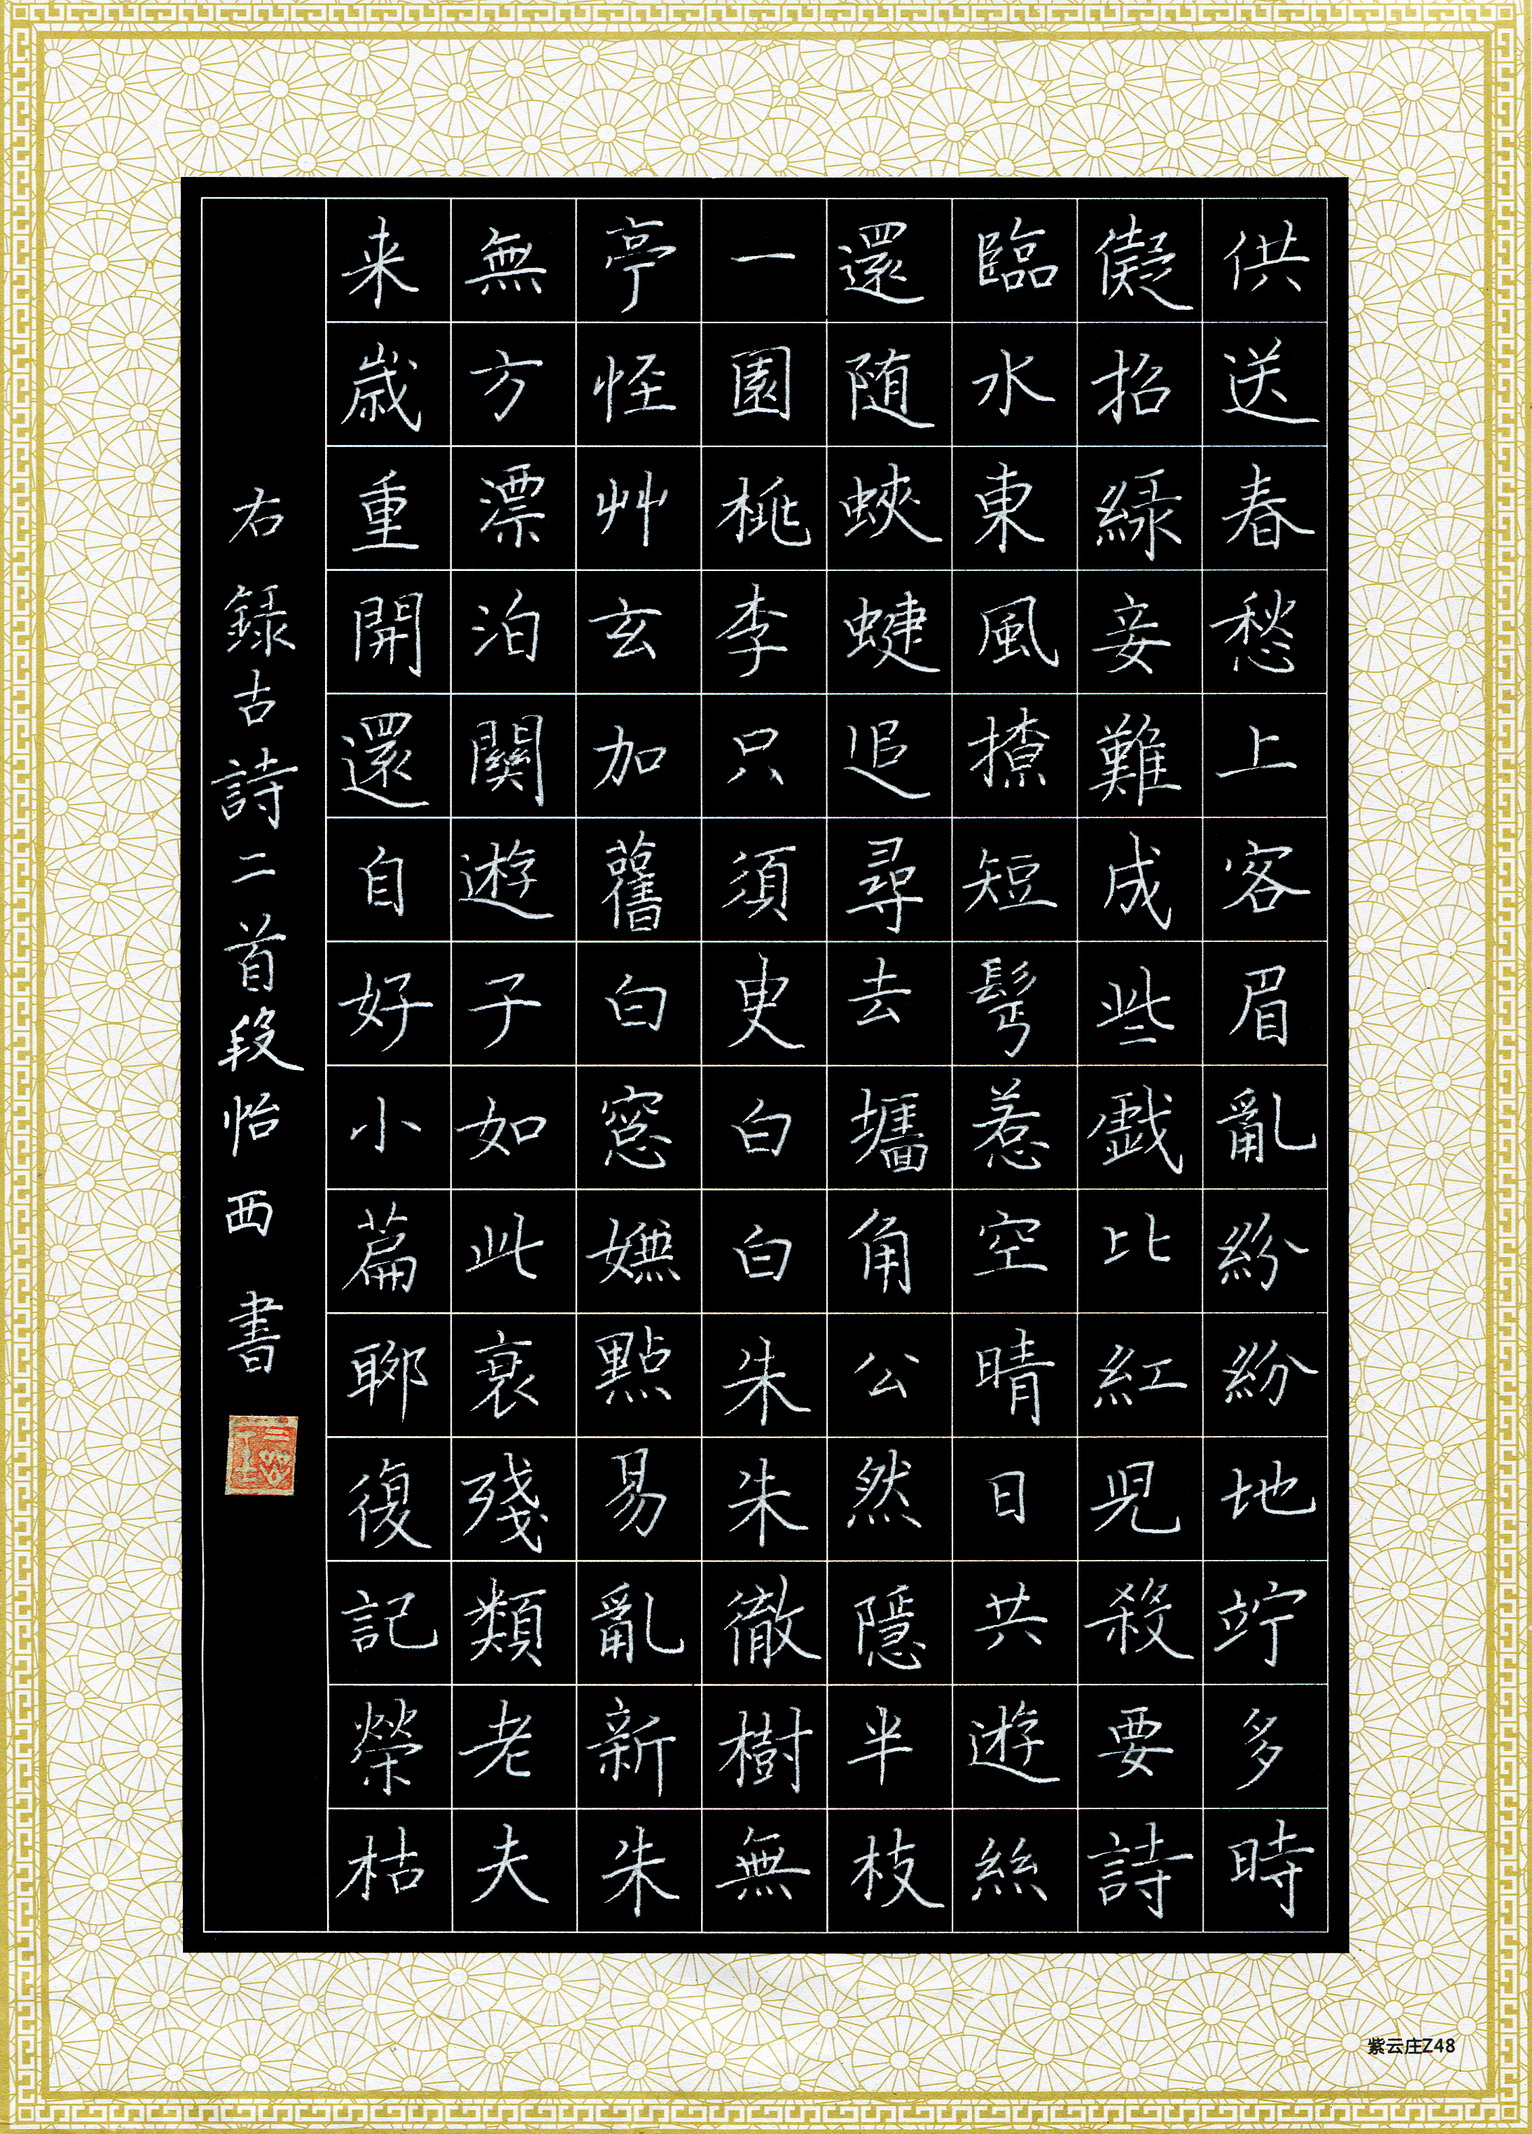 供送春愁上客眉亂紛紛地竚多時
儗招綠妾難成些戲比紅兒殺要詩
臨水東風撩短鬢惹空晴日共遊絲
還随蛺蜨追尋去墻角公然隱半枝
一園桃李只須臾白白朱朱徹樹無
亭怪艸玄加舊白窓嫵點易亂新朱
無方漂泊關遊子如此衰殘類老夫
来歲重開還自好小篇聊復記榮枯
右錄古詩二首段怡西書
紫云庄Z48